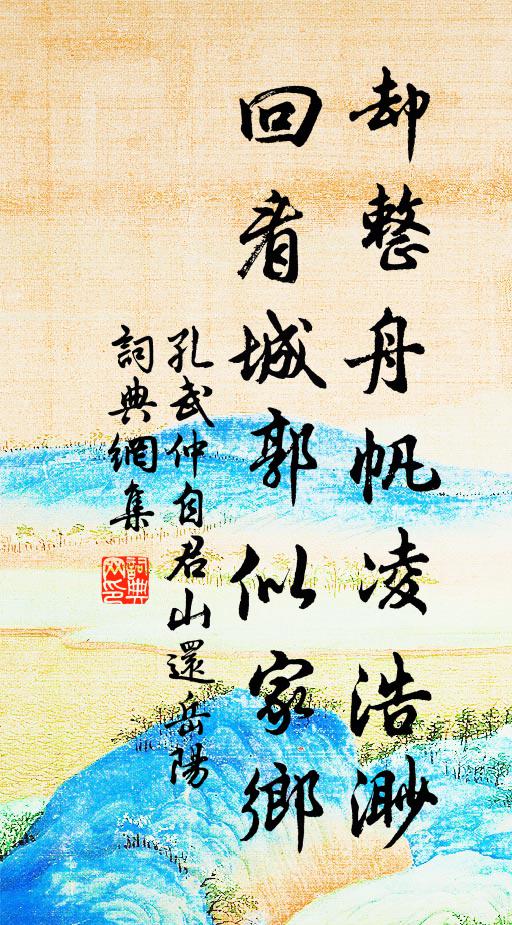 却整舟帆凌浩渺
回看城郭似家鄉
孔武仲自君山還岳陽
詞典網集
詞典網印